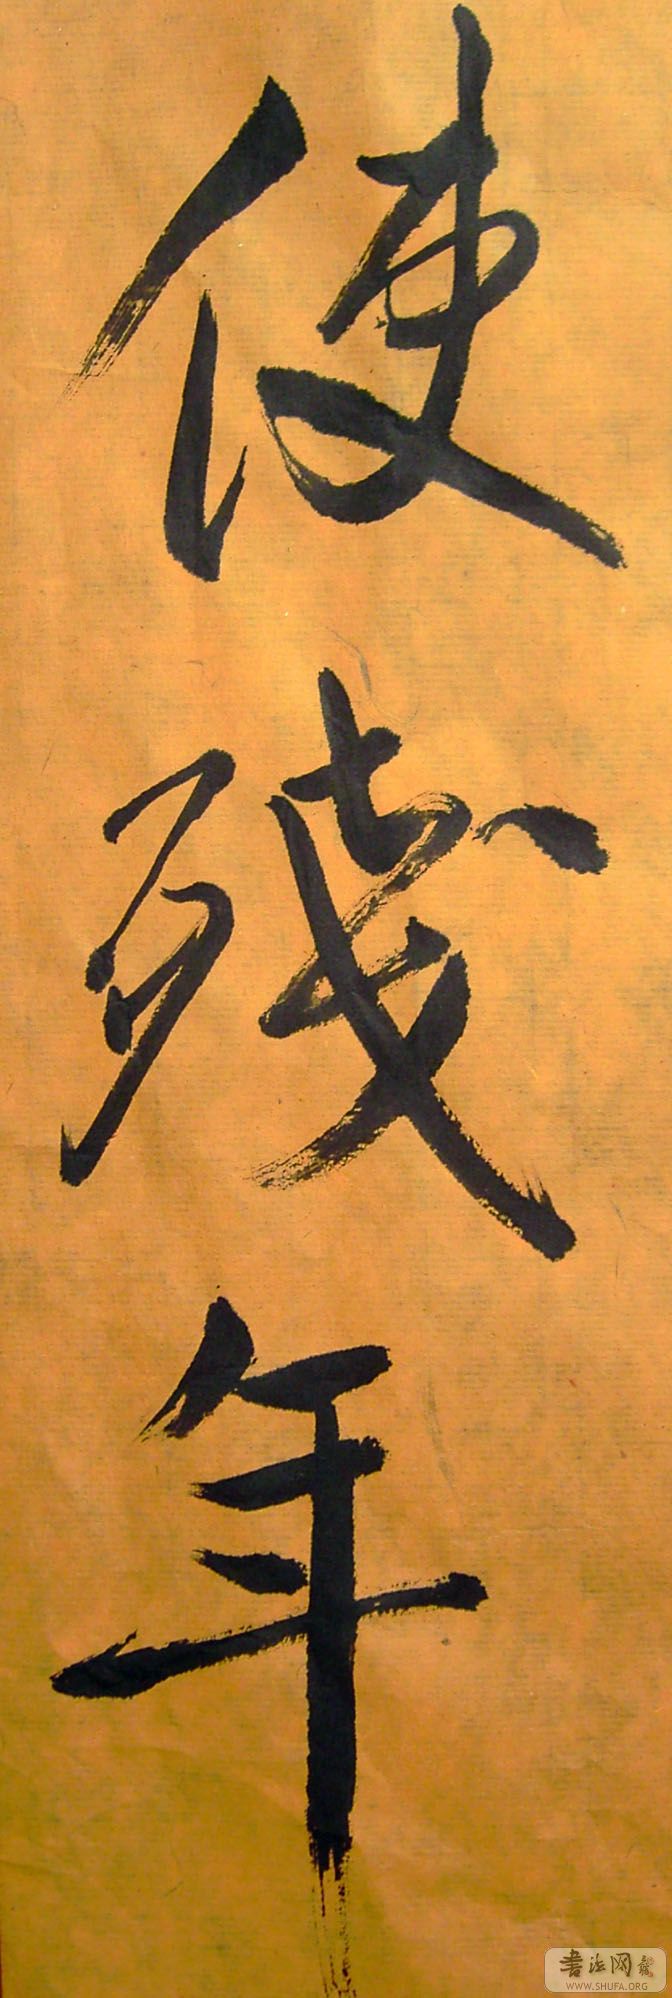 使残年
书法网
WWW.SHUFA.ORG